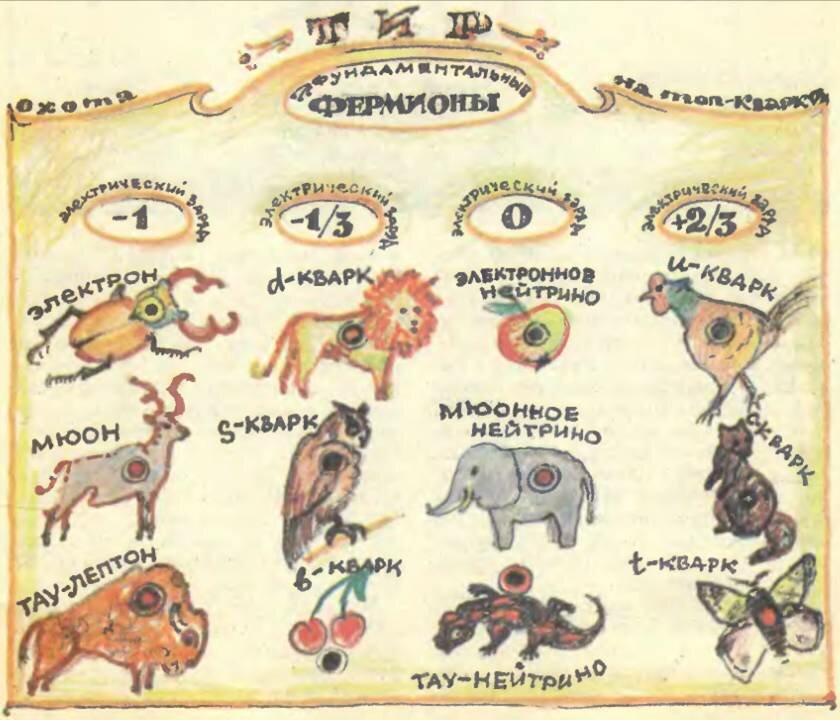 ТИР
ФУНДАМЕНТАЛЬНЫЕ
ФЕРМИОНЫ
ОХОТА
НА ТОП-КВАРК
ЭЛЕКТРИЧЕСКИЙ ЗАРЯД
-1
ЭЛЕКТРИЧЕСКИЙ ЗАРЯД
-1/3
ЭЛЕКТРИЧЕСКИЙ ЗАРЯД
0
ЭЛЕКТРИЧЕСКИЙ ЗАРЯД
+2/3
ЭЛЕКТРОН
d-КВАРК
ЭЛЕКТРОННОЕ
НЕЙТРИНО
u-КВАРК
МЮОН
S-КВАРК
МЮОННОЕ
НЕЙТРИНО
C-КВАРК
ТАУ-ЛЕПТОН
b-КВАРК
ТАУ-НЕЙТРИНО
t-КВАРК